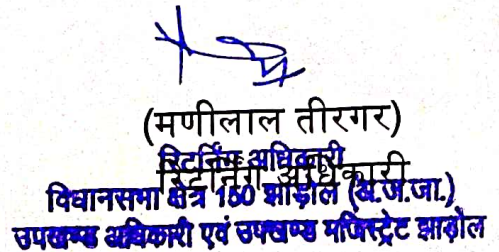 (मणीलाल तीरगर)
रिटर्निंग अधिकारी
रिटर्निंग अधिकारी
विधानसभा क्षेत्र 150 झाड़ोल (अ.ज.जा.)
उपखण्ड अधिकारी एवं उपखण्ड मजिस्ट्रेट झाड़ोल